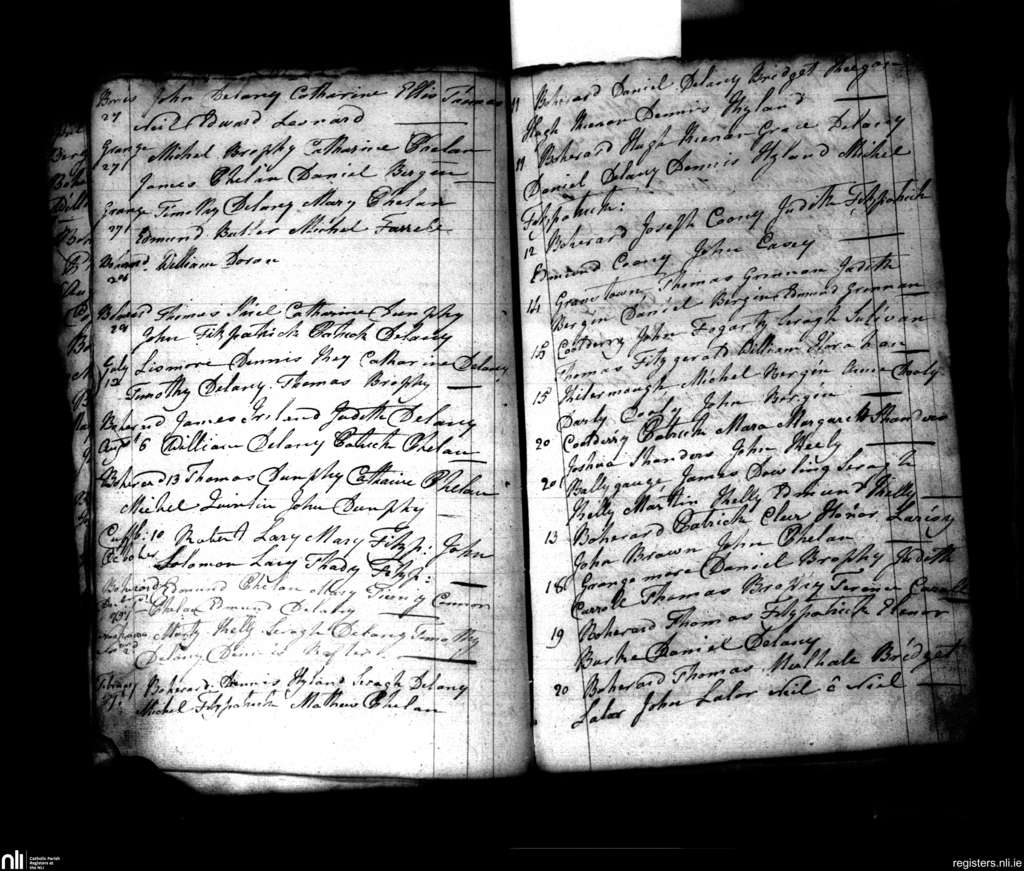 27 John Delany Catharine Ellis Thomas
Neil Edward Leonard
Grange 27 Michel Brophy Catharine Phelan
James Phelan Daniel Bergin
Grange 27 Timothy Delany Mary Phelan
Edmund Butler Michel Farrele
28 William Doran
Boherard 28 Thomas Catharine Dunphy
John Fitzpatrick Patrick Delany
July 12 Lismore Dennis Catharine Delany
Timothy Delany Thomas Brophy
Boherard James Ireland Judith Delany
Augt 6 William Delany Patrick Phelan
Boherard 13 Thomas Dunphy Catharine Phelan
Michel Quinlin John Dunphy
10 Robert Lacy Mary Fitzp: John
October Solomon Lacy Thady Fitzp:
Boherard Edmund Phelan Mary Connor
Phelan Edmund Delany
Kelly Seragh Delany Timothy
Delany Dennis
February Boherard Dennis Hyland Seragh Delany
Michel Fitzpatrick Mathew Phelan
11 Boherard Daniel Delany Bridget
Hugh Kienan Dennis Hyland
11 Boherard Hugh Kienan Grace Delany
Daniel Delany Dennis Hyland Michel
Fitzpatrick:
12 Boherard Joseph Coony Judith Fitzpatrick
Edmund Coony John Casey
14 Grovestown Thomas Grennan Judith
Bergin Daniel Bergin Edmund Grennan
15 Cootderry John Fogarty Seragh Sulivan
Thomas Fitzgerald William Horahan
15 Michel Bergin Anne Cooly
Darby Cooly John Bergin
20 Cootderry Patrick Mara Margarett Shanders
Joshua Shanders John Heely
20 Ballygauge James Dowling Seragh
Kelly Martin Kelly Edmund Kelly
13 Boherard Patrick Clear Honor Larissy
John Brown John Phelan
18 Grangemore Daniel Brophy Judith
Carroll Thomas Brophy Terence Carroll
19 Boherard Thomas Fitzpatrick Elenor
Burke Daniel Delany
20 Boherard Thomas Mulhale Bridget
Lalor John Lalor Neil o Niel
nli
Catholic Parish
Registers at
the NLI
registers.nli.ie